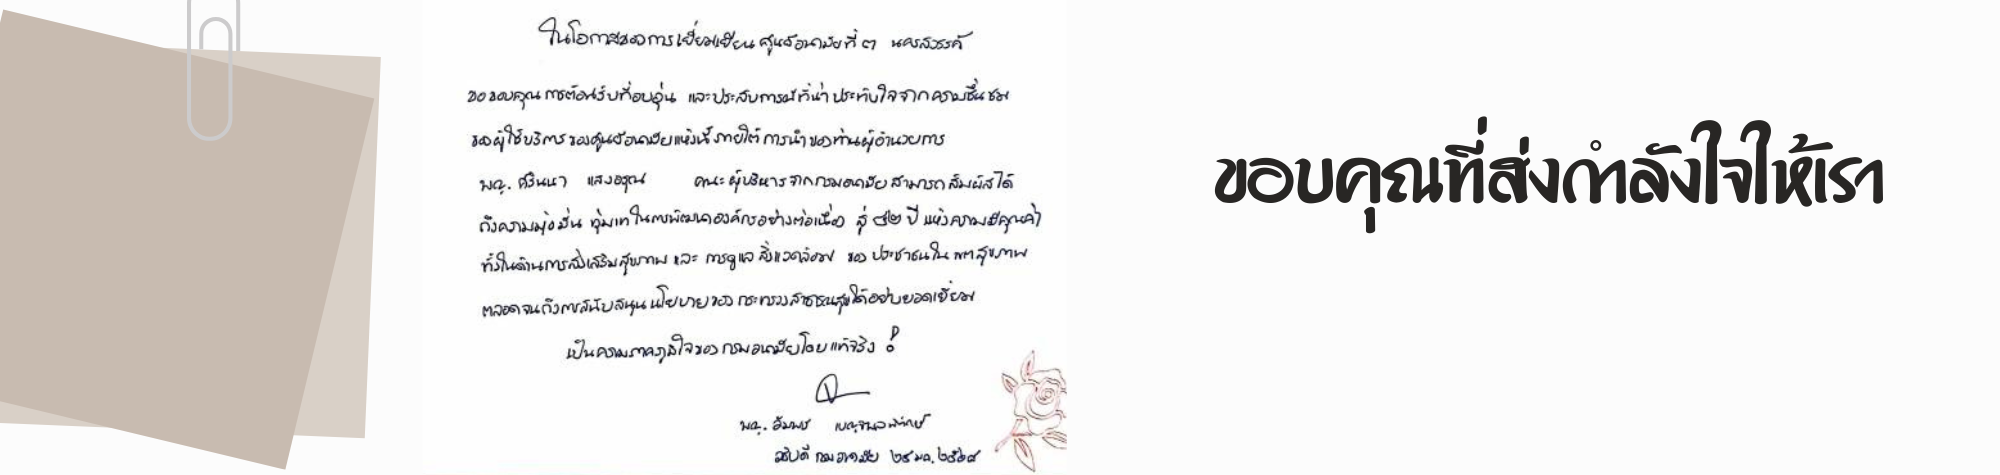 ในโอกาสของการเยี่ยมเยียน ศูนย์อนามัยที่ ๓ นครสวรรค์
ขอขอบคุณ การต้อนรับที่อบอุ่น และประสบการณ์ที่น่าประทับใจจากความชื่นชม
ของผู้ใช้บริการ ของศูนย์อนามัยแห่งนี้ ภายใต้การนำของท่านผู้อำนวยการ
พญ. ศรินนา แสงอรุณ คณะผู้บริหารจากกรมอนามัย สามารถสัมผัสได้
ถึงความมุ่งมั่น ทุ่มเท ในการพัฒนาองค์กรอย่างต่อเนื่อง สู่ ๗๒ ปี แห่งความมีคุณค่า
ทั้งในด้านการส่งเสริมสุขภาพ และ การดูแลสิ่งแวดล้อม ของ ประชาชนในเขตสุขภาพ
ตลอดจนถึงการสนับสนุนนโยบายของกระทรวงสาธารณสุขได้อย่างยอดเยี่ยม
เป็นความภาคภูมิใจของกรมอนามัยโดยแท้จริง !
พญ. อัมพร เบญจพลพิทักษ์
อธิบดี กรมอนามัย ๒๕ มค. ๒๕๖๘
ขอบคุณที่ส่งกำลังใจให้เรา